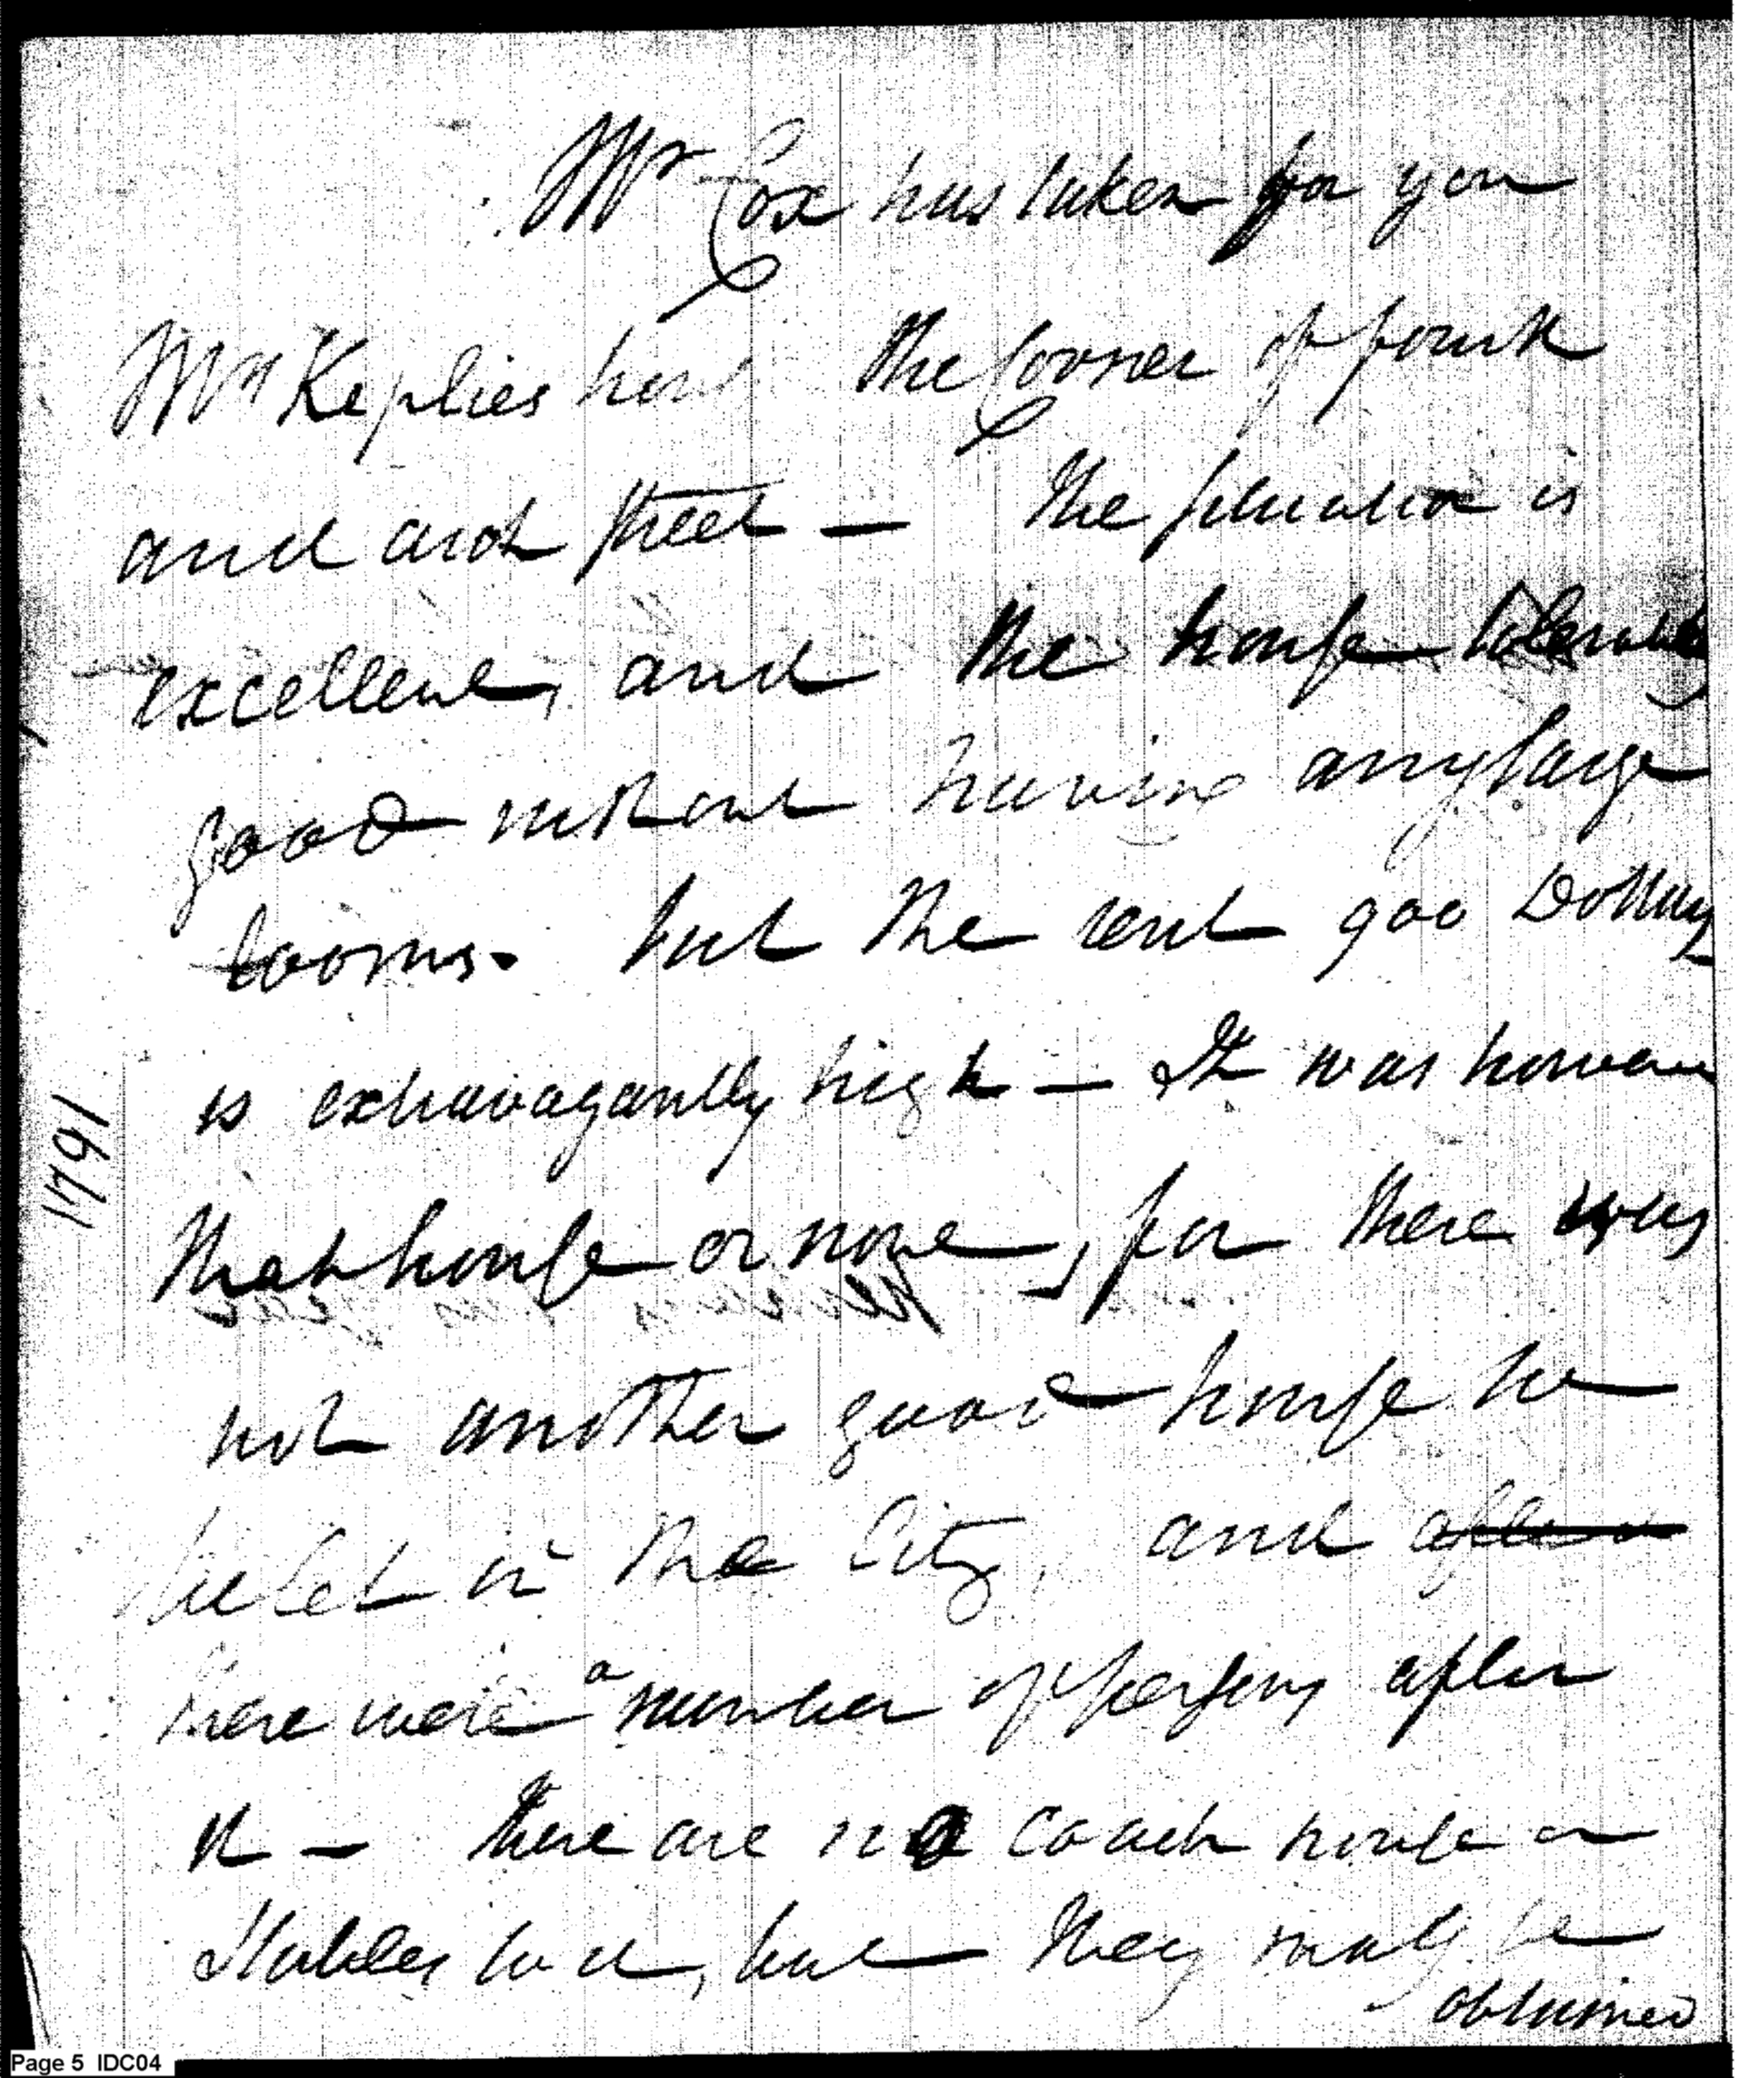 Mr Cox has taken for you
Mrs Keplies the Corner of fourth
and arch street — The situation is
excellent, and the house tolerably
good without having any large
rooms. but the rent 900 Dollars
is extravagantly high — It was however
that house or none, for there was
not another good house to
be let in the City, and
there were a number of persons after
it — There are no coach house or
Stables to it, but they may be
obtained
1791
Page 5 IDC04